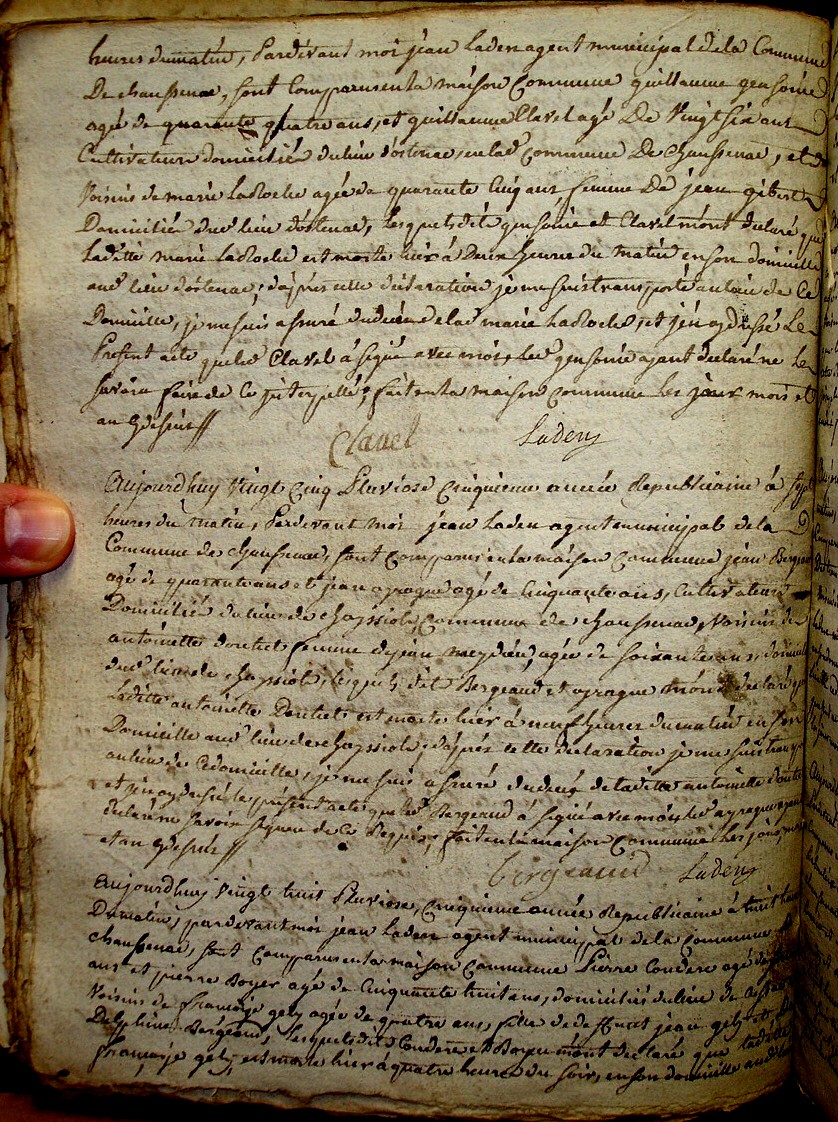 heures du matin, Pardevant moi jean Laden agent municipal de la Commune
De chaussenac, sont Comparus en la maison Commune guillaume gensonie
agé de quarante quatre ans, et guillaume Clavel agé De Vingt six ans
Cultivateurs domiciliés du lieu d'ostenac, en lad Commune De chaussenac, et
Voisins de marie LaRoche agée de quarante Cinq ans, femme De jean gibert
Domicilié dud lieu d'ostenac, lesquels dits gensonie et Clavel m'ont declaré que
Laditte marie LaRoche est morte hier à Deux heures du matin en son domicille
aud lieu d'ostenac, d'après cette déclaration je me suis transporté au lieu de Ce
Domicille, je me suis assuré du décès de lad marie LaRoche, et j'en ay dressé Le
Présent acte que led Clavel à signé avec moi, led gensonie ayant déclaré ne Le
savoir faire de Ce interpellé, fait en la maison commune les jour mois et
an q desius
Clavel Laden
Aujourdhuy Vingt Cinq Pluviose Cinquieme année Republicaine à sept
heures du matin, Pardevant moi jean Laden agent municipal de la
Commune de chaussenac, sont Comparus en la maison Commune jean Bergeaud
agé de quarante ans et jean apragne agé de Cinquante ans, Cultivateurs
Domiciliés du lieu de chayssiole, Commune de chaussenac, Voisins de
antoinette doutet femme de jean meydieu, agée de soixante ans, domicilié
dud lieu de chayssiole, lesquels dit Bergeaud et apragne m'ont declaré que
Laditte antoinette Doutet est morte hier à neuf heures du matin en son
Domicille aud lieu de chayssiole; d'après cette declaration je me suis transporté
au lieu de Ce domicille, je me suis assuré du décès de laditte antoinette doutet
et j'en ay dressé le présent acte que led Bergeaud à signé avec moi, led apragne ayant
declaré ne savoir signer de Ce Requis, fait en la maison Commune les jour, mois
et an q desius
bergeaud Laden
Aujourdhuy Vingt huit Pluviose, Cinquieme année Republicaine à huit heures
Du matin, pardevant moi jean Laden agent municipal de la Commune de
chaussenac, sont Comparus en la maison Commune Pierre Couderc agé de
ans et pierre Boyer agé de Cinquante huit ans, domiciliés du lieu de
Voisins de françoise gely agée de quatre ans, fille de deffunt jean gely et de
Delphine Bergeaud, lesquels dit Couderc et Boyer m'ont declaré que laditte
françoise gely est morte hier à quatre heures du soir, en son domicille aud lieu